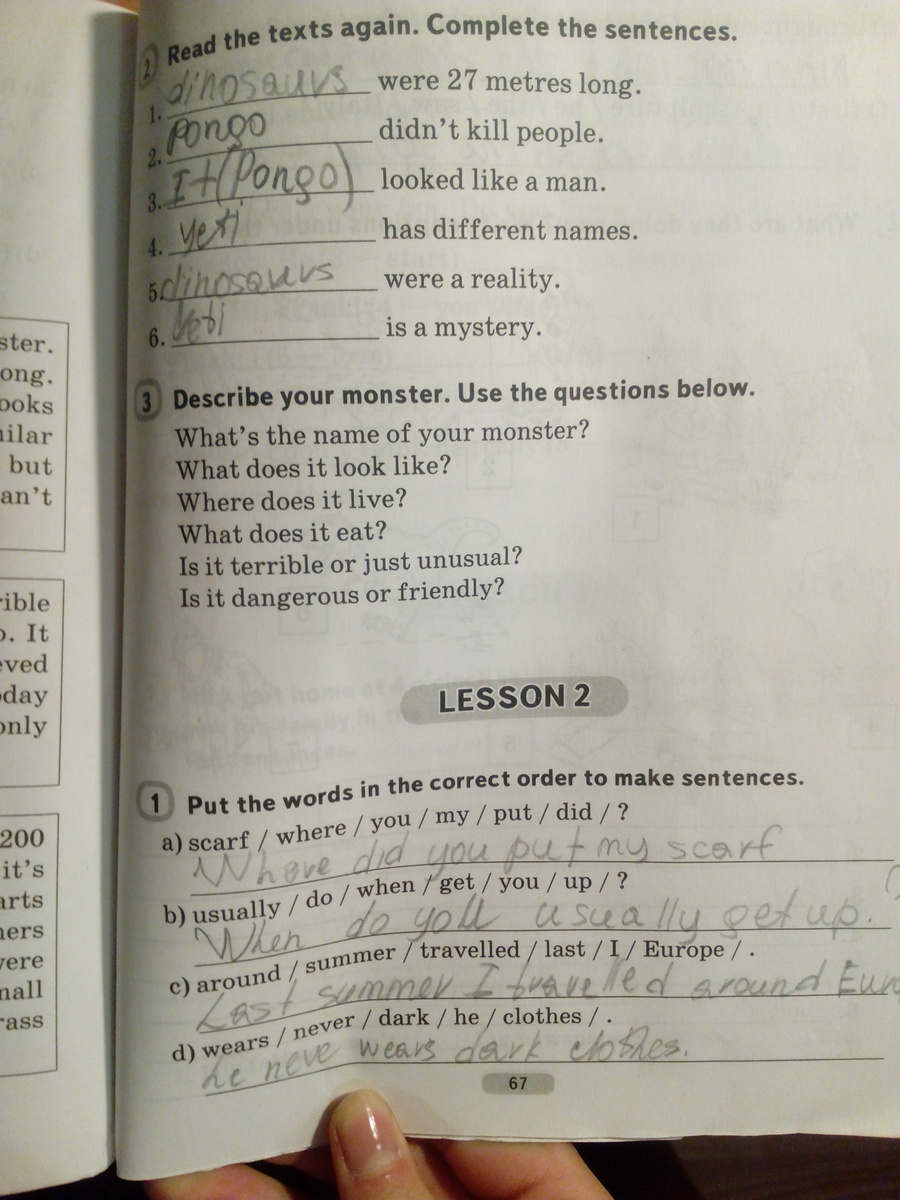 2 Read the texts again. Complete the sentences.
1. dinosaurs were 27 metres long.
2. pongo didn't kill people.
3. It(Pongo) looked like a man.
4. yeti has different names.
5. dinosaurs were a reality.
6. Yeti is a mystery.
3 Describe your monster. Use the questions below.
What's the name of your monster?
What does it look like?
Where does it live?
What does it eat?
Is it terrible or just unusual?
Is it dangerous or friendly?
LESSON 2
1 Put the words in the correct order to make sentences.
a) scarf / where / you / my / put / did / ?
Where did you put my scarf
b) usually / do / when / get / you / up / ?
When do you usually get up.
c) around / summer / travelled / last / I / Europe / .
Last summer I travelled around Euro
d) wears / never / dark / he / clothes / .
he neve wears dark clothes.
67
ster.
ong.
ooks
ilar
but
an't
ible
o. It
ved
day
only
200
it's
arts
ners
vere
mall
rass